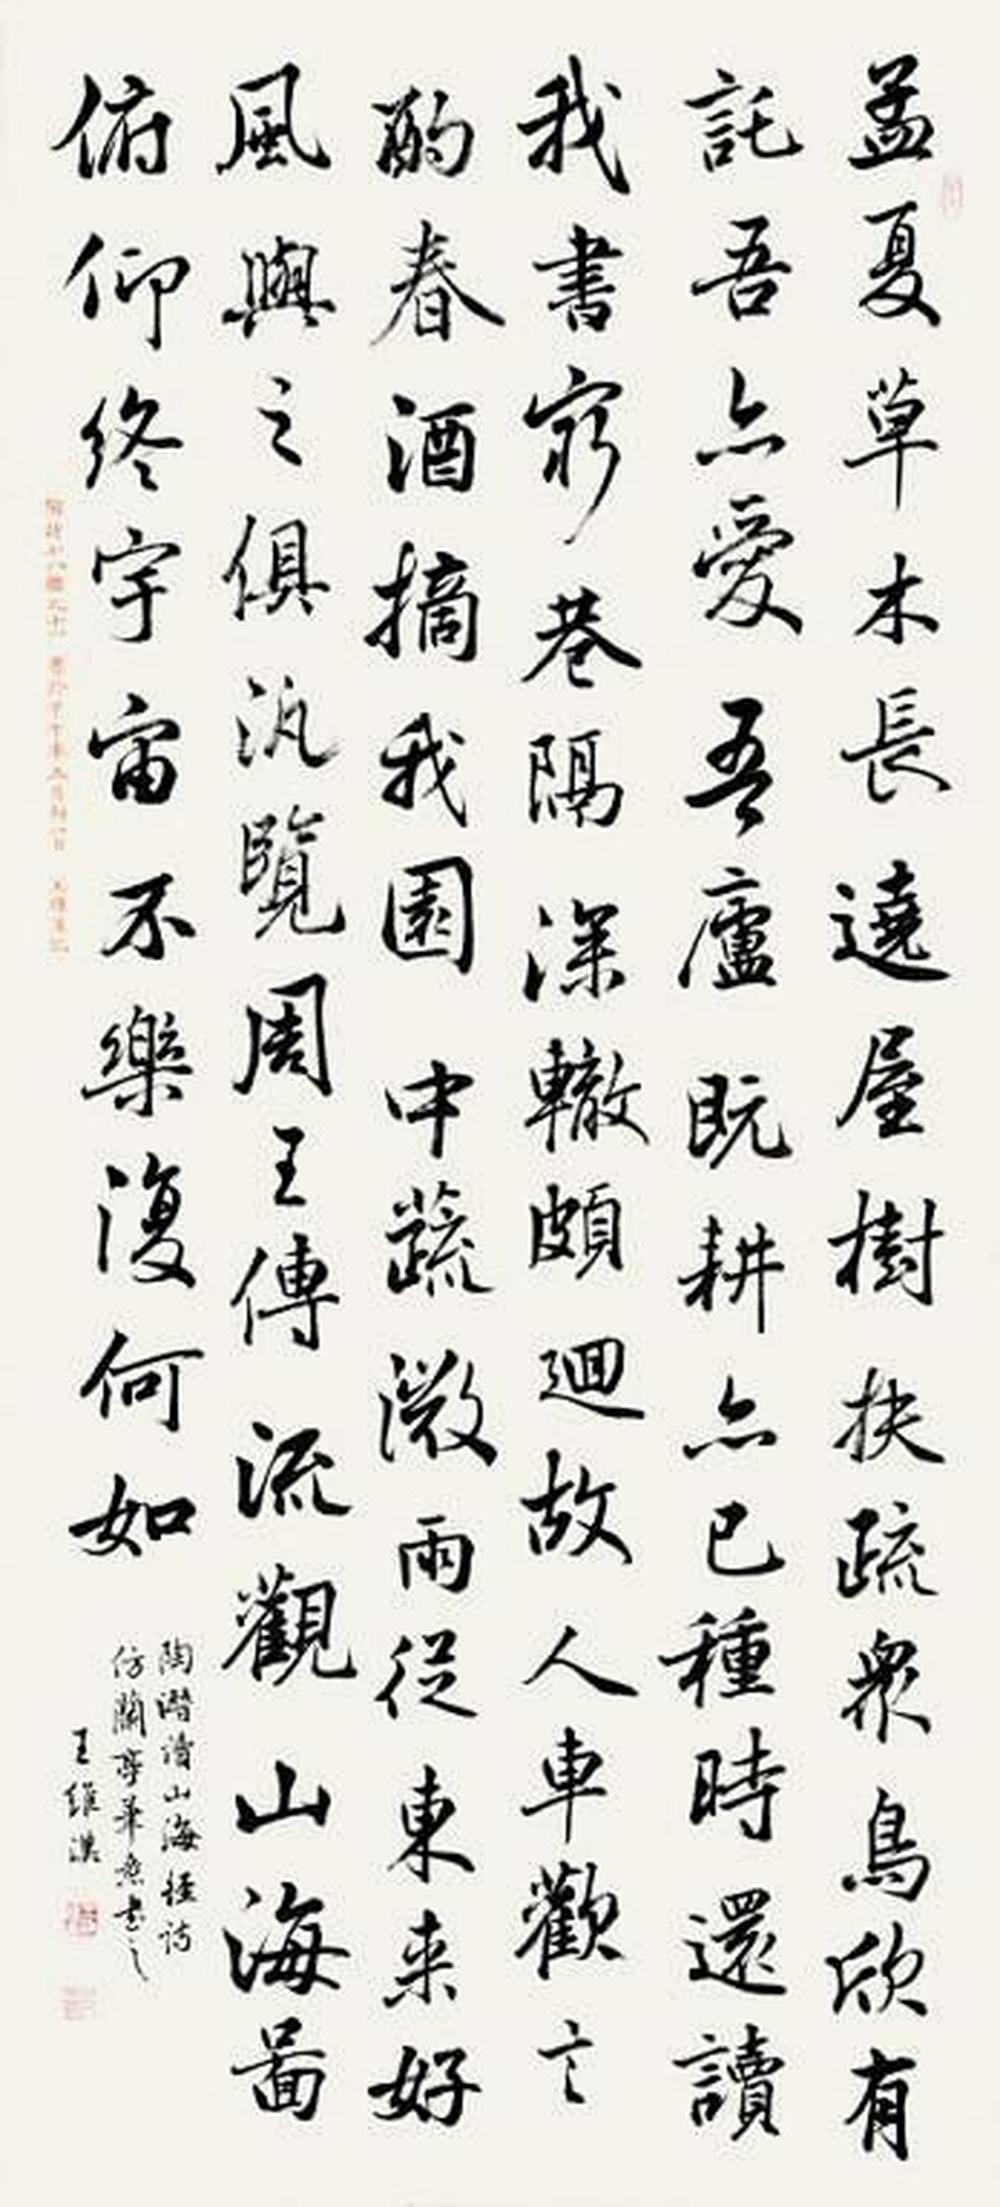 孟夏草木長遶屋樹扶疏衆鳥欣有
託吾亦愛吾廬既耕亦已種時還讀
我書窮巷隔深轍頗迴故人車歡言
酌春酒摘我園中蔬微雨從東来好
風與之俱汎覽周王傳流觀山海啚
俯仰終宇宙不樂復何如
陶潛讀山海經詩
仿蘭亭筆意書之
王維漢